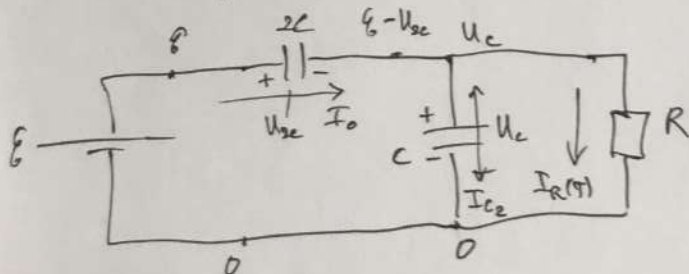 ℰ 2C ℰ-U₂c Uc
+ -
U₂c I₀
ℰ + Uc R
C -
I_C₂ I_R(τ)
0 0